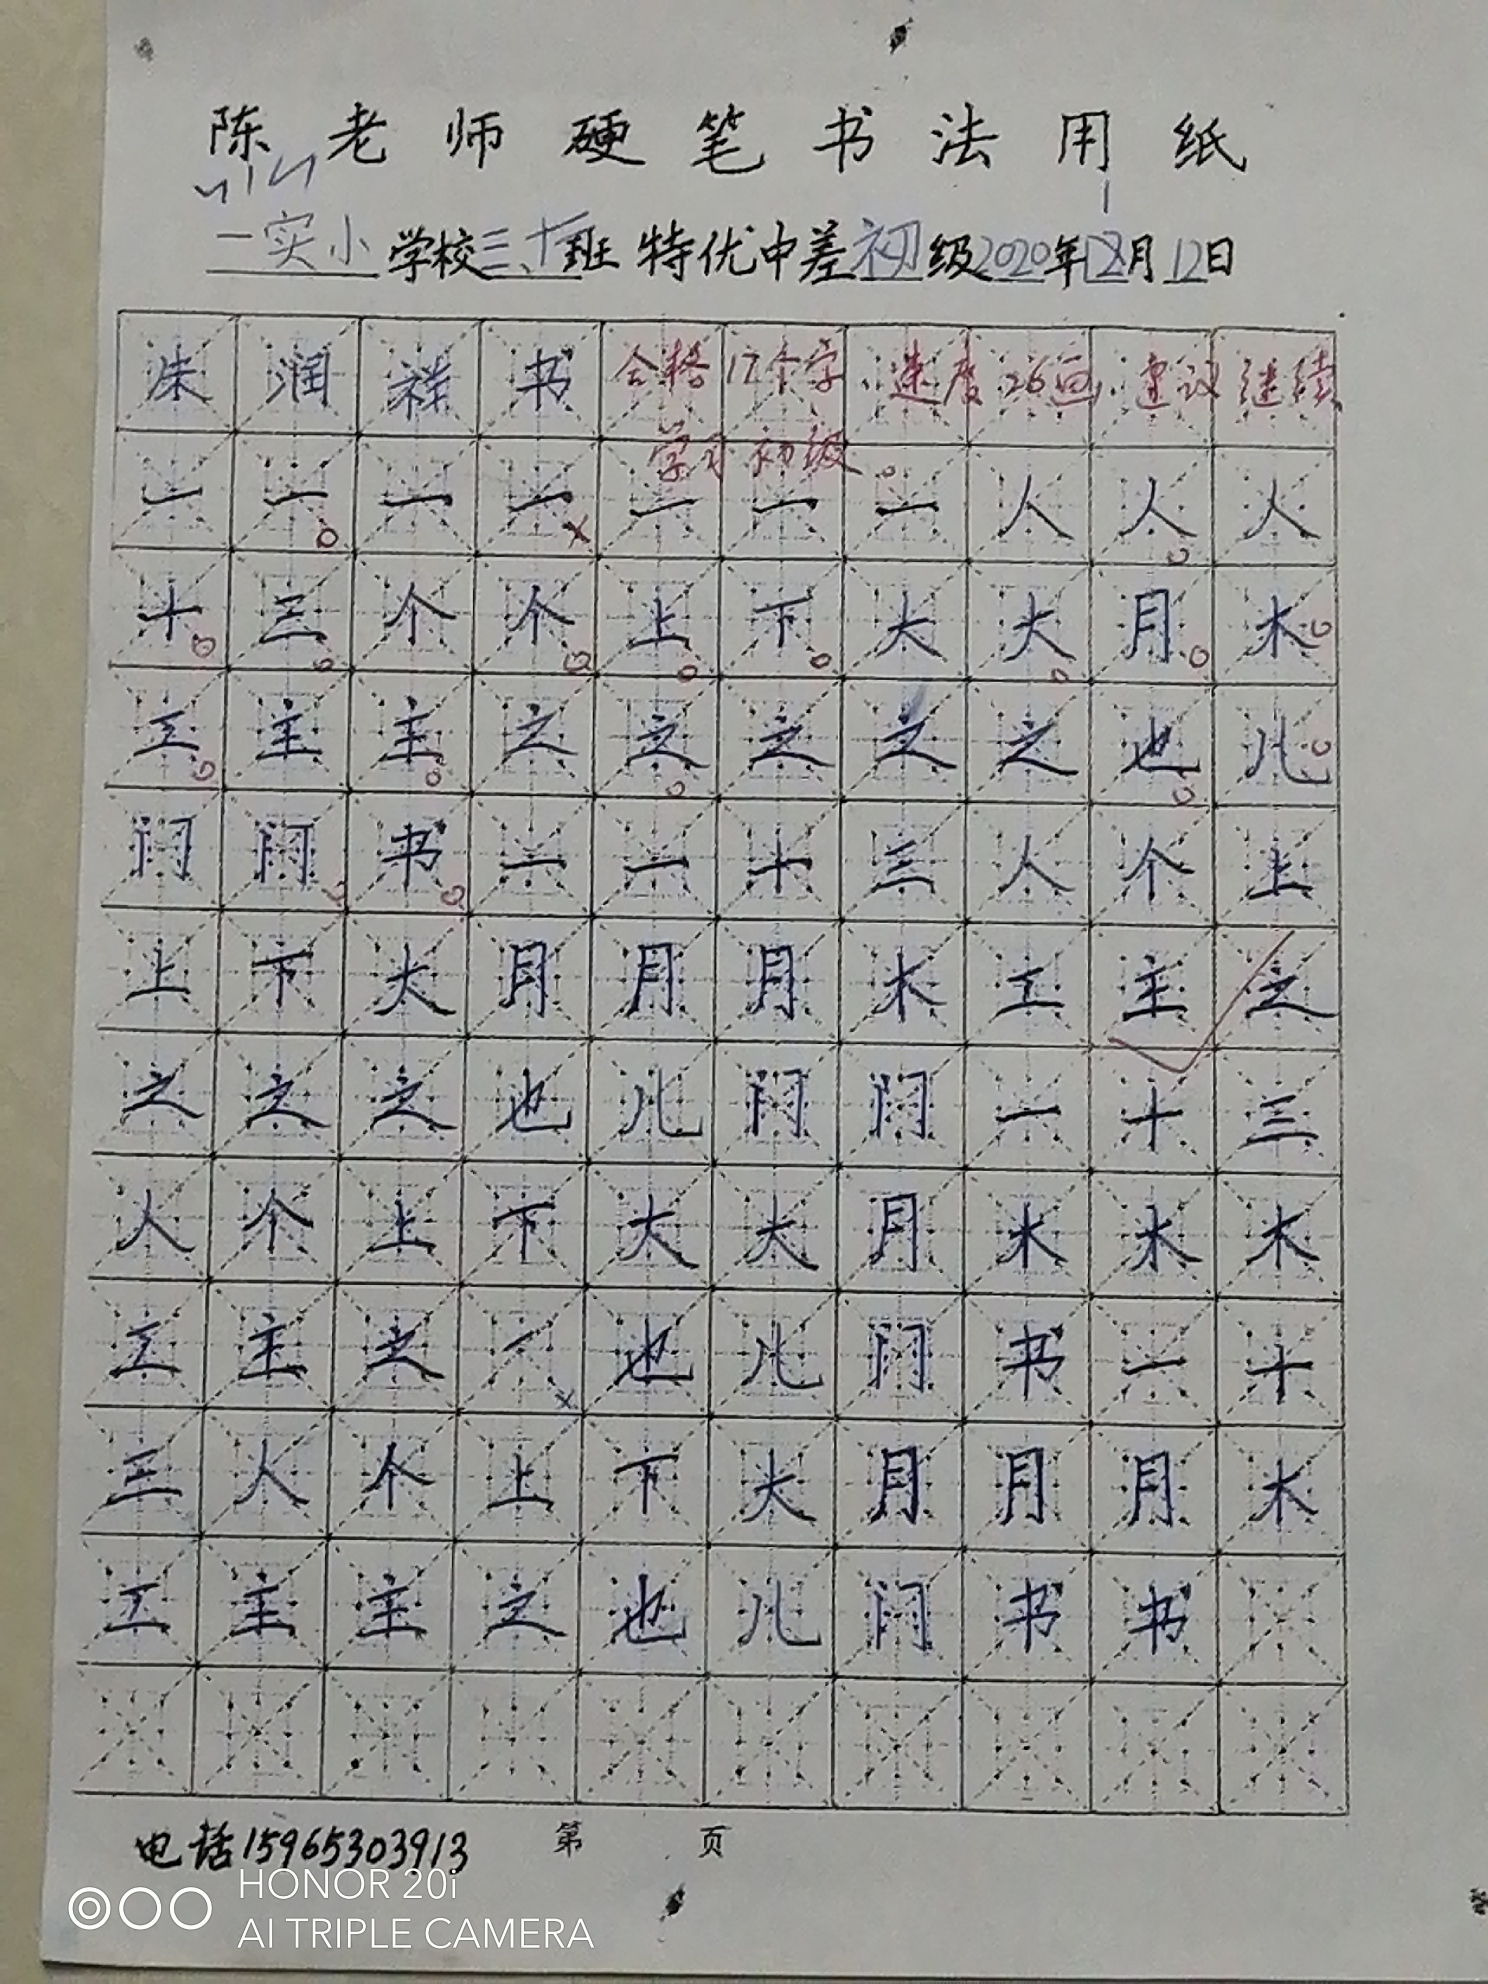 陈老师硬笔书法用纸
一实小学校三.十班 特优中差初级2020年12月12日
朱润祥书合格17个字.速度26画.建议继续
学习初级。
一一一一一一一人人人
十三个个上下大大月木
工主主之之之之之也儿
门门书一一十三人个上
上下大月月月木工主之
之之之也儿门门一十三
人个上下大大月木木木
工主之也儿门书一十
三人个上下大月月月木
工主主之也儿门书书
电话15965303913 第 页
HONOR 20i
AI TRIPLE CAMERA